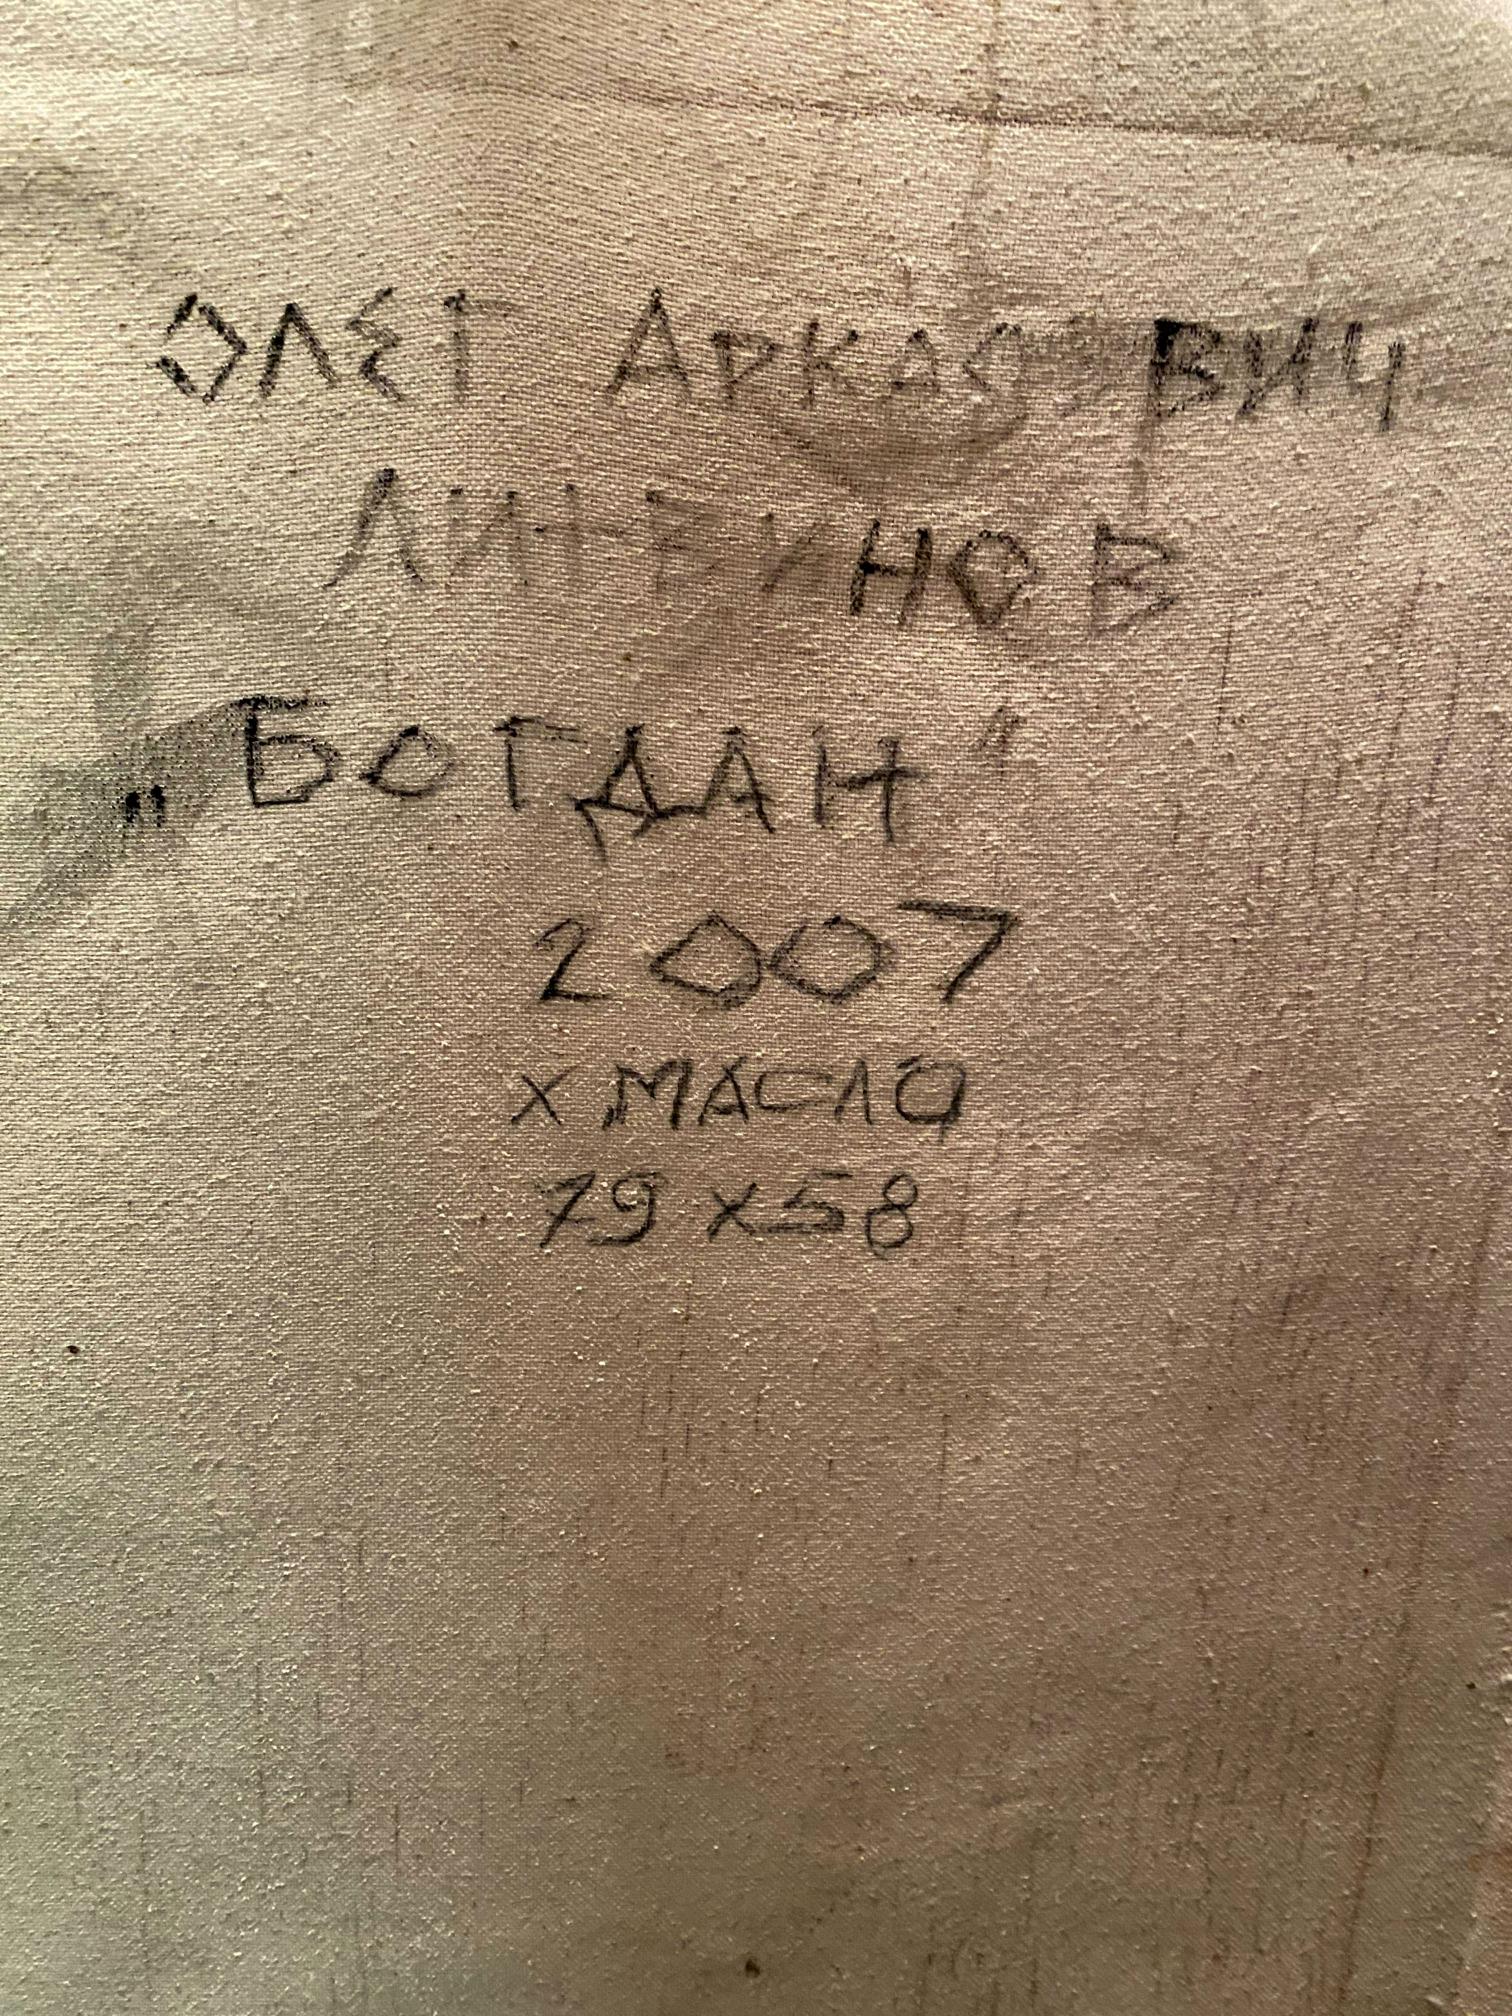 ОЛЕГ АРКАД ВИЧ
ЛИТВИНОВ
„БОГДАН"
2007
х МАСЛО
79 х 58